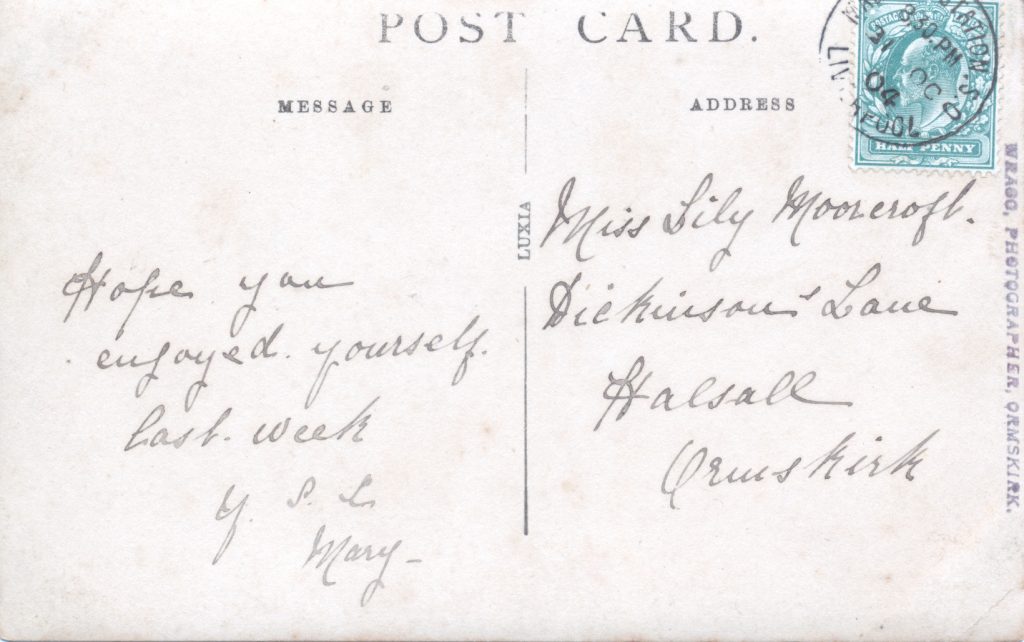 POST CARD.
MESSAGE
ADDRESS
LUXIA
Hope you
enjoyed yourself.
last week
Y. S. L
Mary
Miss Lily Moorcroft.
Dickinson's Lane
Halsall
Ormskirk
HALF PENNY
STATION S.O
8.30 PM
21 OC
04
LIVERPOOL
WRAGG, PHOTOGRAPHER, ORMSKIRK.